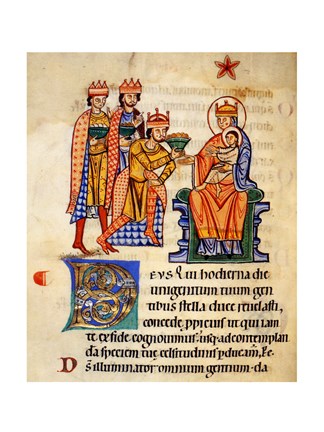 DEVS Qui hodierna die
unigentum tuum gen
tibus stella duce reuelasti,
concede ppicius ut qui iam
te ex fide cognouimus. usq; ad contemplan
da speciem tue celsitudinis pducam, P e
DS illuminator omnium gentium. da